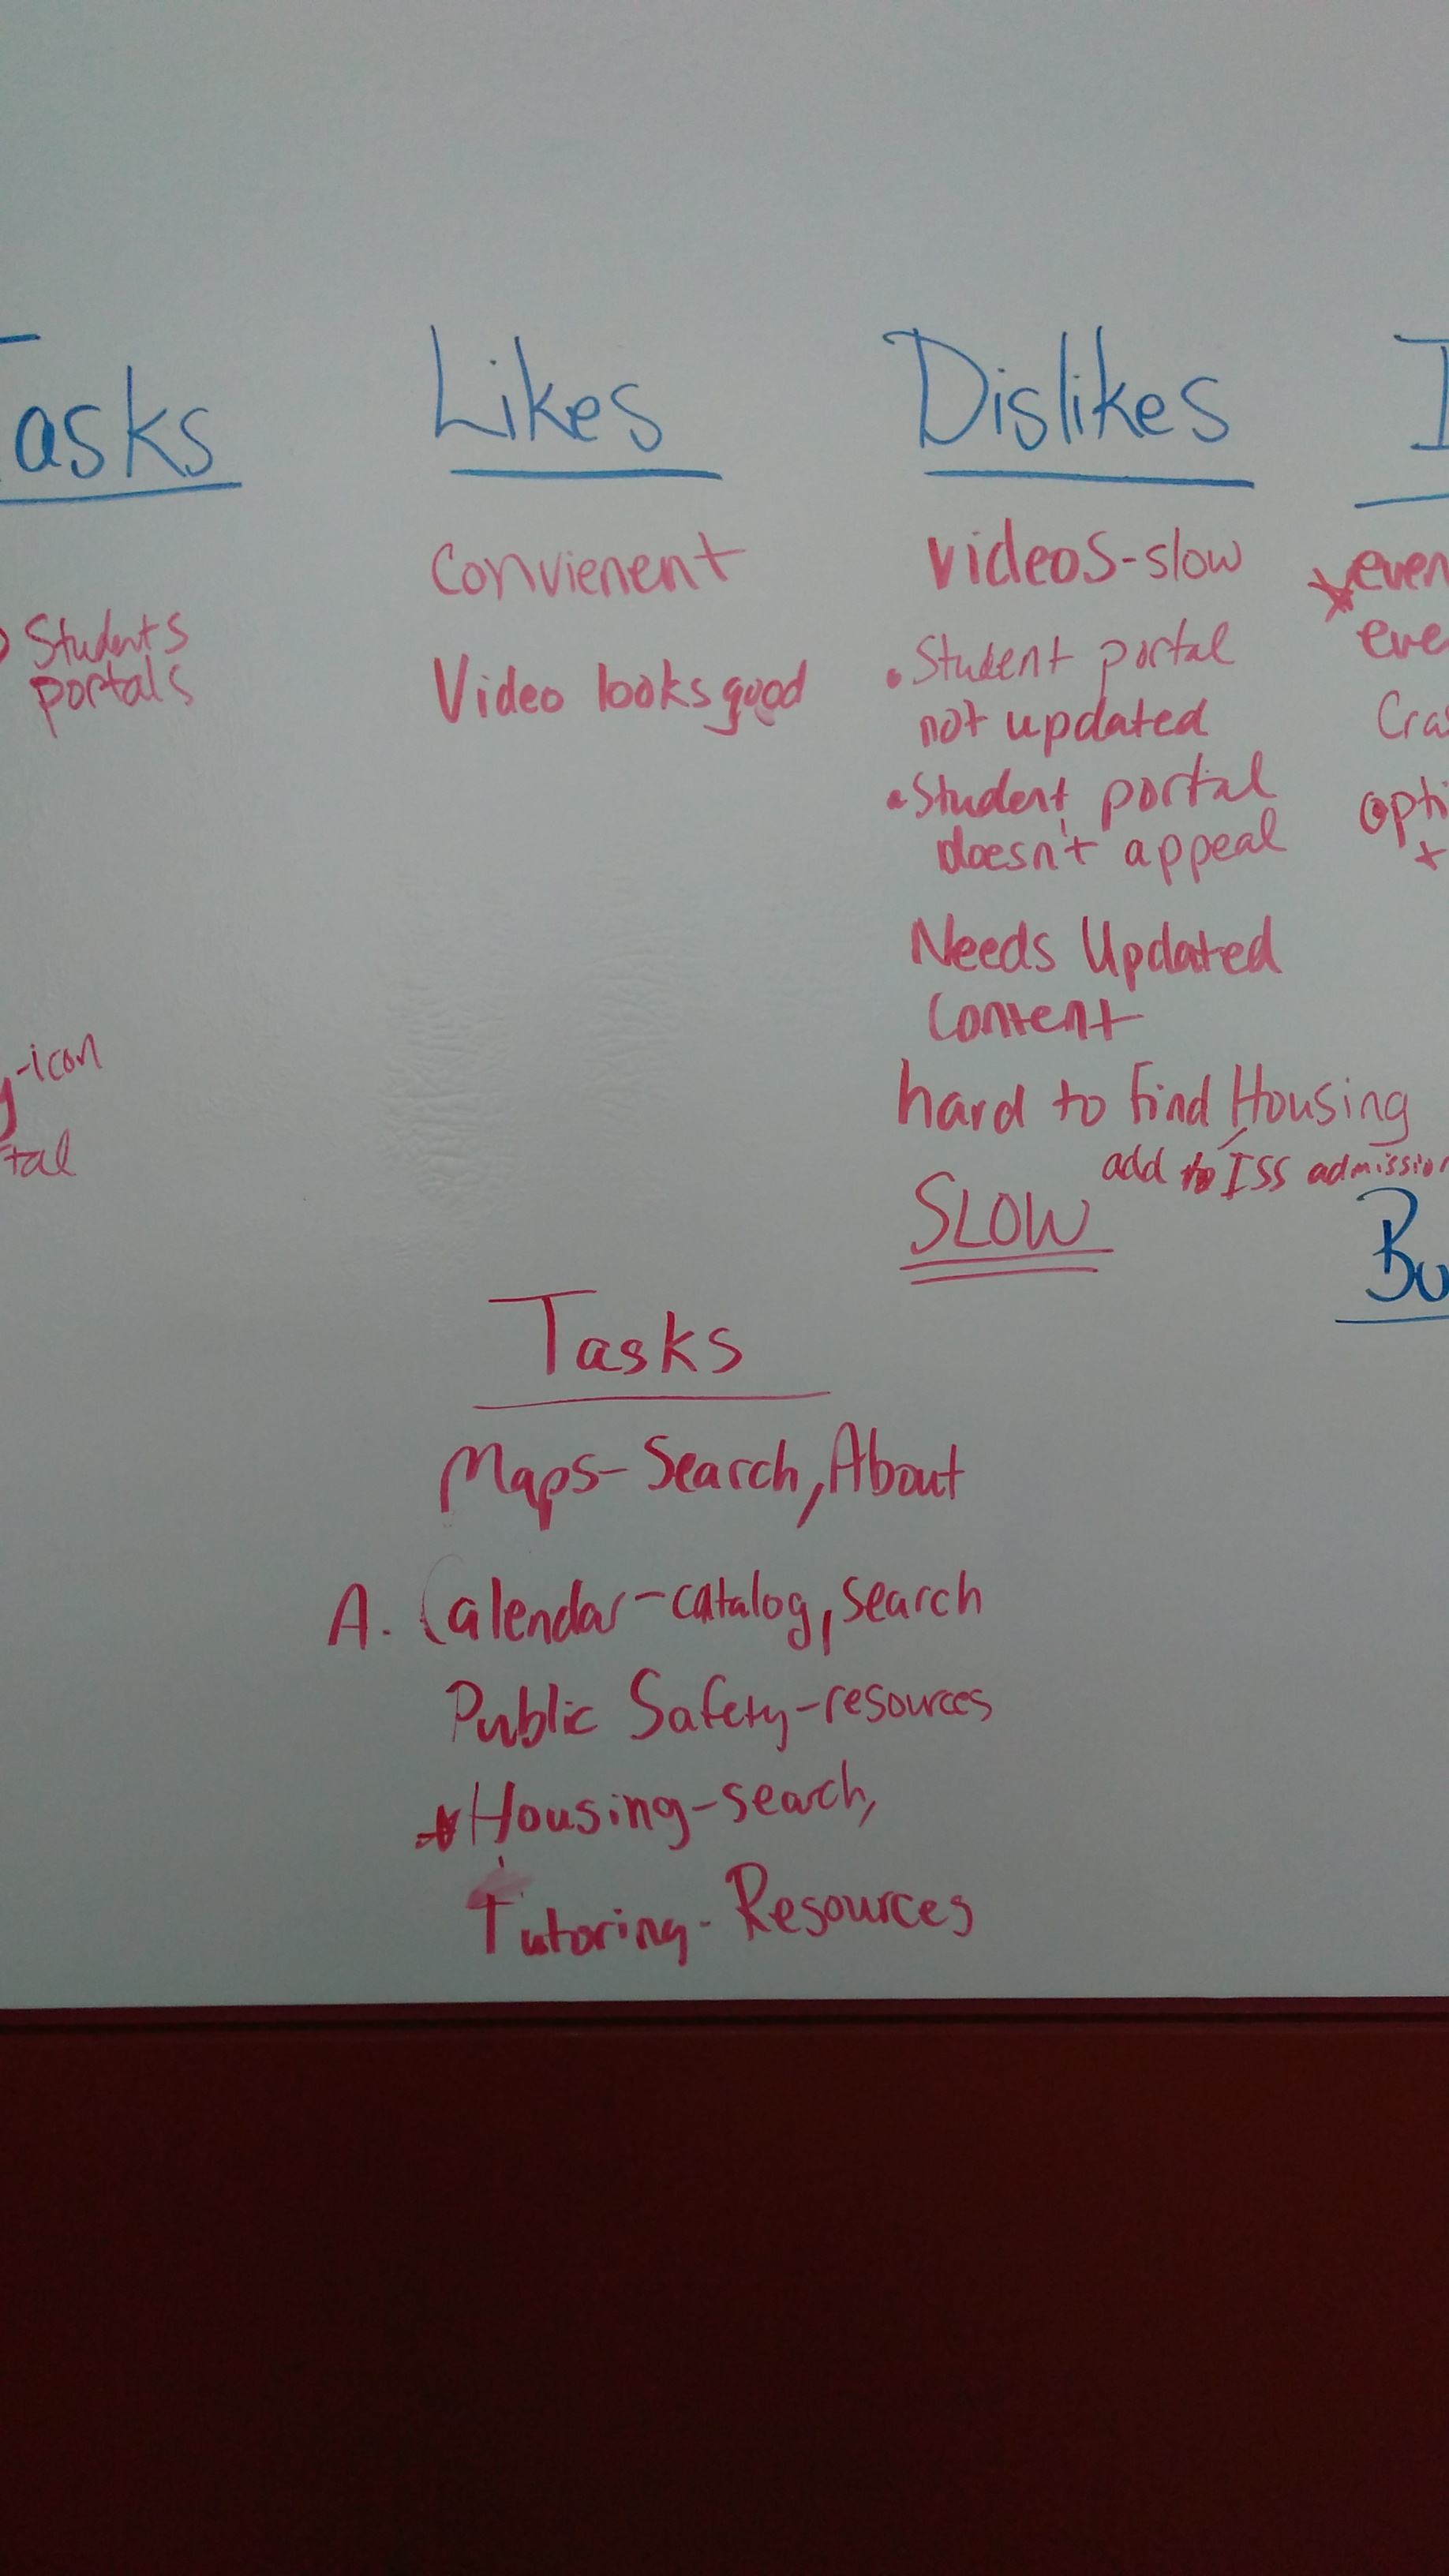 Tasks
Students
portals
-icon
Likes
Convienent
Video looks good
Dislikes
Videos-slow
• Student portal
not updated
• Student portal
doesn't appeal
Needs Updated
Content
hard to find Housing
add to ISS admission
SLOW
Tasks
Maps- Search, About
A. Calendar-catalog, search
Public Safety-resources
*Housing-search,
Tutoring- Resources